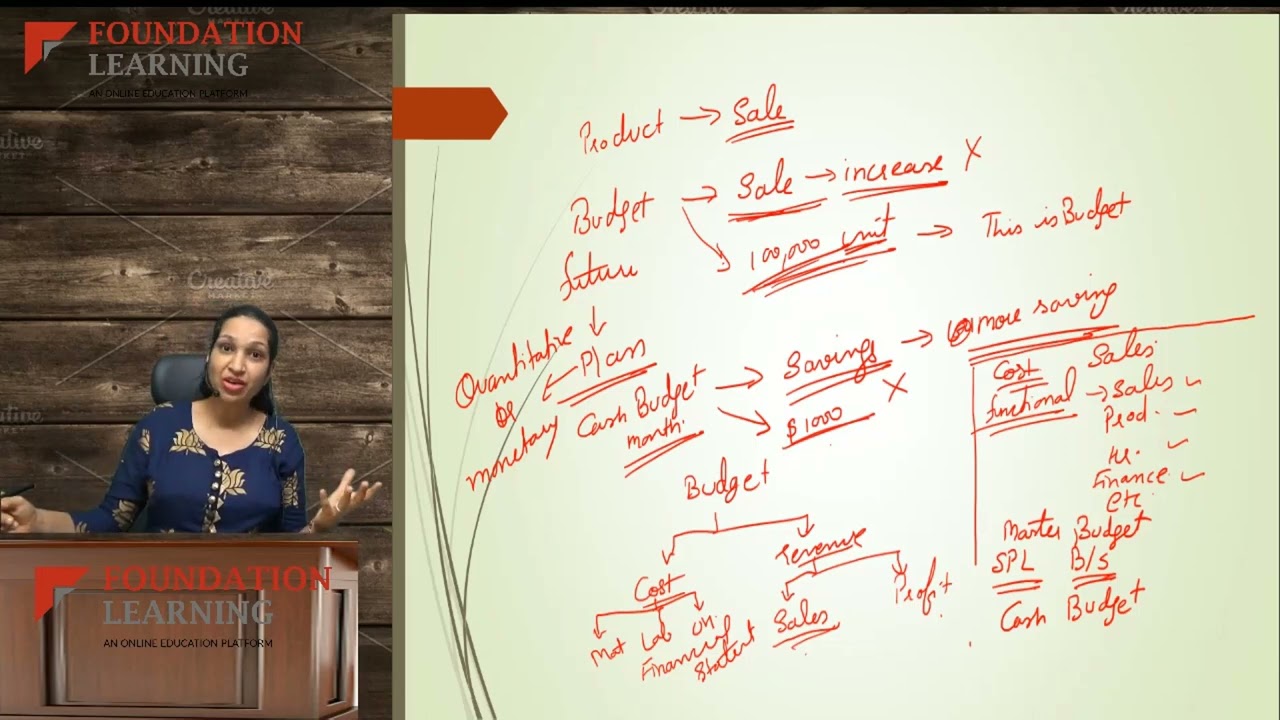 FOUNDATION
LEARNING
AN ONLINE EDUCATION PLATFORM
Creative
MARKET
Product → Sale
Budget → Sale → increase X
→ 100,000 unit → This is Budget
future
↓
Plan
Quantitative
or
monetary
Cash Budget → Savings → more saving
month. → $1000 X
Budget
Cost
revenue
Mat Lab OH.
Sales
Profit
Financing
Statent
Cost Sales
functional → Sales
Prod.
HR.
Finance
etc.
Master Budget
SPL B/S
Cash Budget
FOUNDATION
LEARNING
AN ONLINE EDUCATION PLATFORM